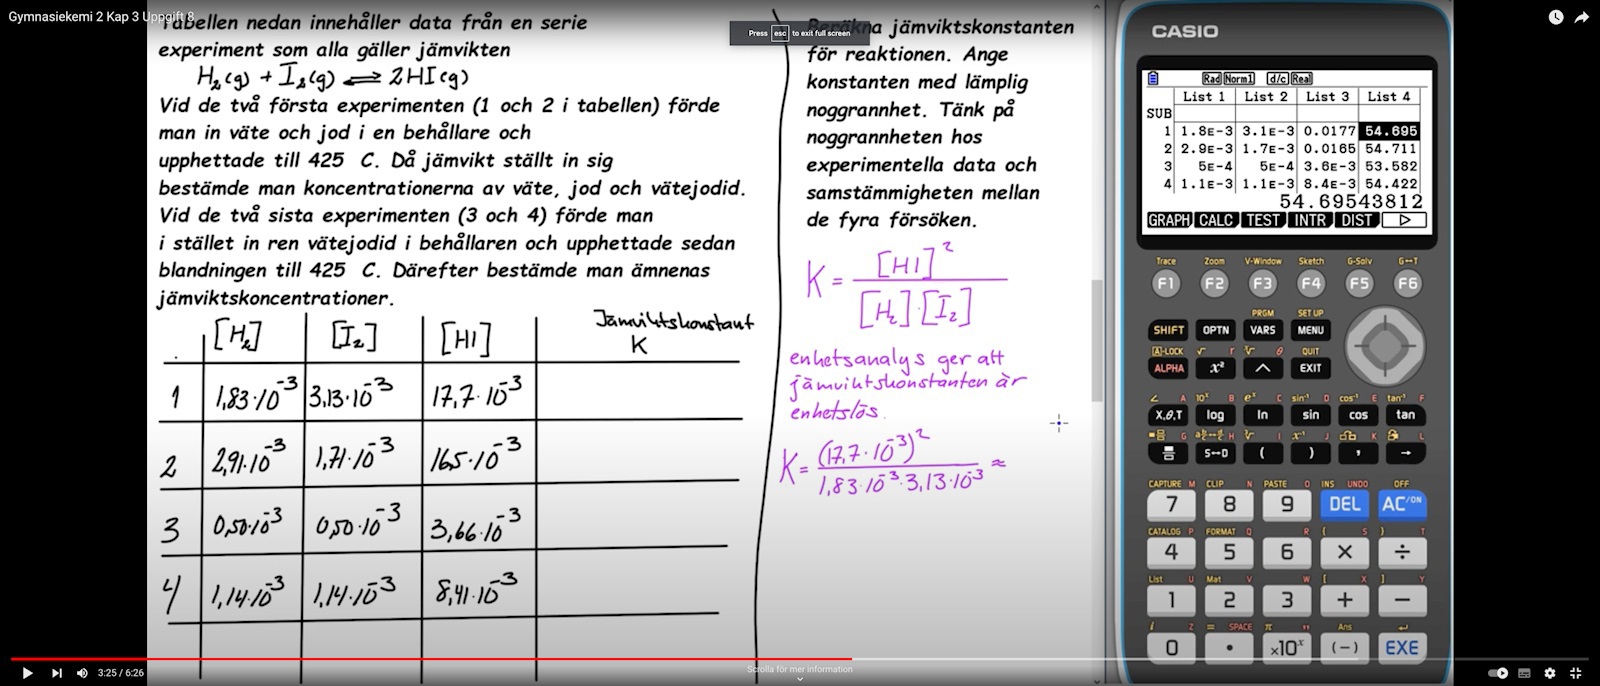 Gymnasiekemi 2 Kap 3 Uppgift 8
Tabellen nedan innehåller data från en serie
experiment som alla gäller jämvikten
H₂(g) + I₂(g) ⇌ 2HI(g)
Vid de två första experimenten (1 och 2 i tabellen) förde
man in väte och jod i en behållare och
upphettade till 425 C. Då jämvikt ställt in sig
bestämde man koncentrationerna av väte, jod och vätejodid.
Vid de två sista experimenten (3 och 4) förde man
i stället in ren vätejodid i behållaren och upphettade sedan
blandningen till 425 C. Därefter bestämde man ämnenas
jämviktskoncentrationer.
[H₂] [I₂] [HI] Jämviktskonstant
K
1 1,83·10⁻³ 3,13·10⁻³ 17,7·10⁻³
2 2,91·10⁻³ 1,71·10⁻³ 16,5·10⁻³
3 0,50·10⁻³ 0,50·10⁻³ 3,66·10⁻³
4 1,14·10⁻³ 1,14·10⁻³ 8,41·10⁻³
Press esc to exit full screen
Beräkna jämviktskonstanten
för reaktionen. Ange
konstanten med lämplig
noggrannhet. Tänk på
noggrannheten hos
experimentella data och
samstämmigheten mellan
de fyra försöken.
K = [HI]² / [H₂]·[I₂]
enhetsanalys ger att
jämviktskonstanten är
enhetslös.
K = (17,7·10⁻³)² / 1,83·10⁻³·3,13·10⁻³ ≈
Scrolla för mer information
3:25 / 6:26
CASIO
Rad Norm1 d/c Real
List 1 List 2 List 3 List 4
SUB
1 1.8E-3 3.1E-3 0.0177 54.695
2 2.9E-3 1.7E-3 0.0165 54.711
3 5E-4 5E-4 3.6E-3 53.582
4 1.1E-3 1.1E-3 8.4E-3 54.422
54.69543812
GRAPH CALC TEST INTR DIST ▷
Trace Zoom V-Window Sketch G-Solv G↔T
F1 F2 F3 F4 F5 F6
PRGM SET UP
SHIFT OPTN VARS MENU
A-LOCK √ r ˣ√ θ QUIT
ALPHA x² ^ EXIT
∠ A 10ˣ B eˣ C sin⁻¹ D cos⁻¹ E tan⁻¹ F
X,θ,T log ln sin cos tan
G H ³√ I x⁻¹ J K L
S↔D ( ) , →
CAPTURE M CLIP N PASTE O INS UNDO OFF
7 8 9 DEL AC/ON
CATALOG P FORMAT Q R { S } T
4 5 6 × ÷
List U Mat V W [ X ] Y
1 2 3 + −
i Z = SPACE π " Ans ↵
0 . ×10ˣ (−) EXE